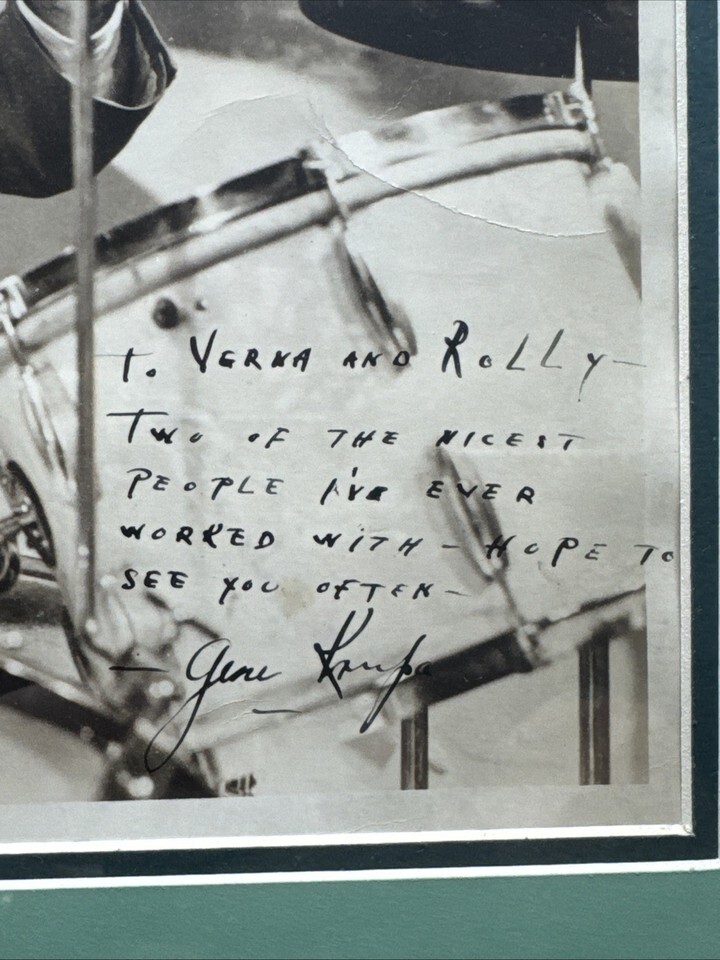 To VERNA AND ROLLY—
TWO OF THE NICEST
PEOPLE I'VE EVER
WORKED WITH — HOPE TO
SEE YOU OFTEN—
— Gene Krupa